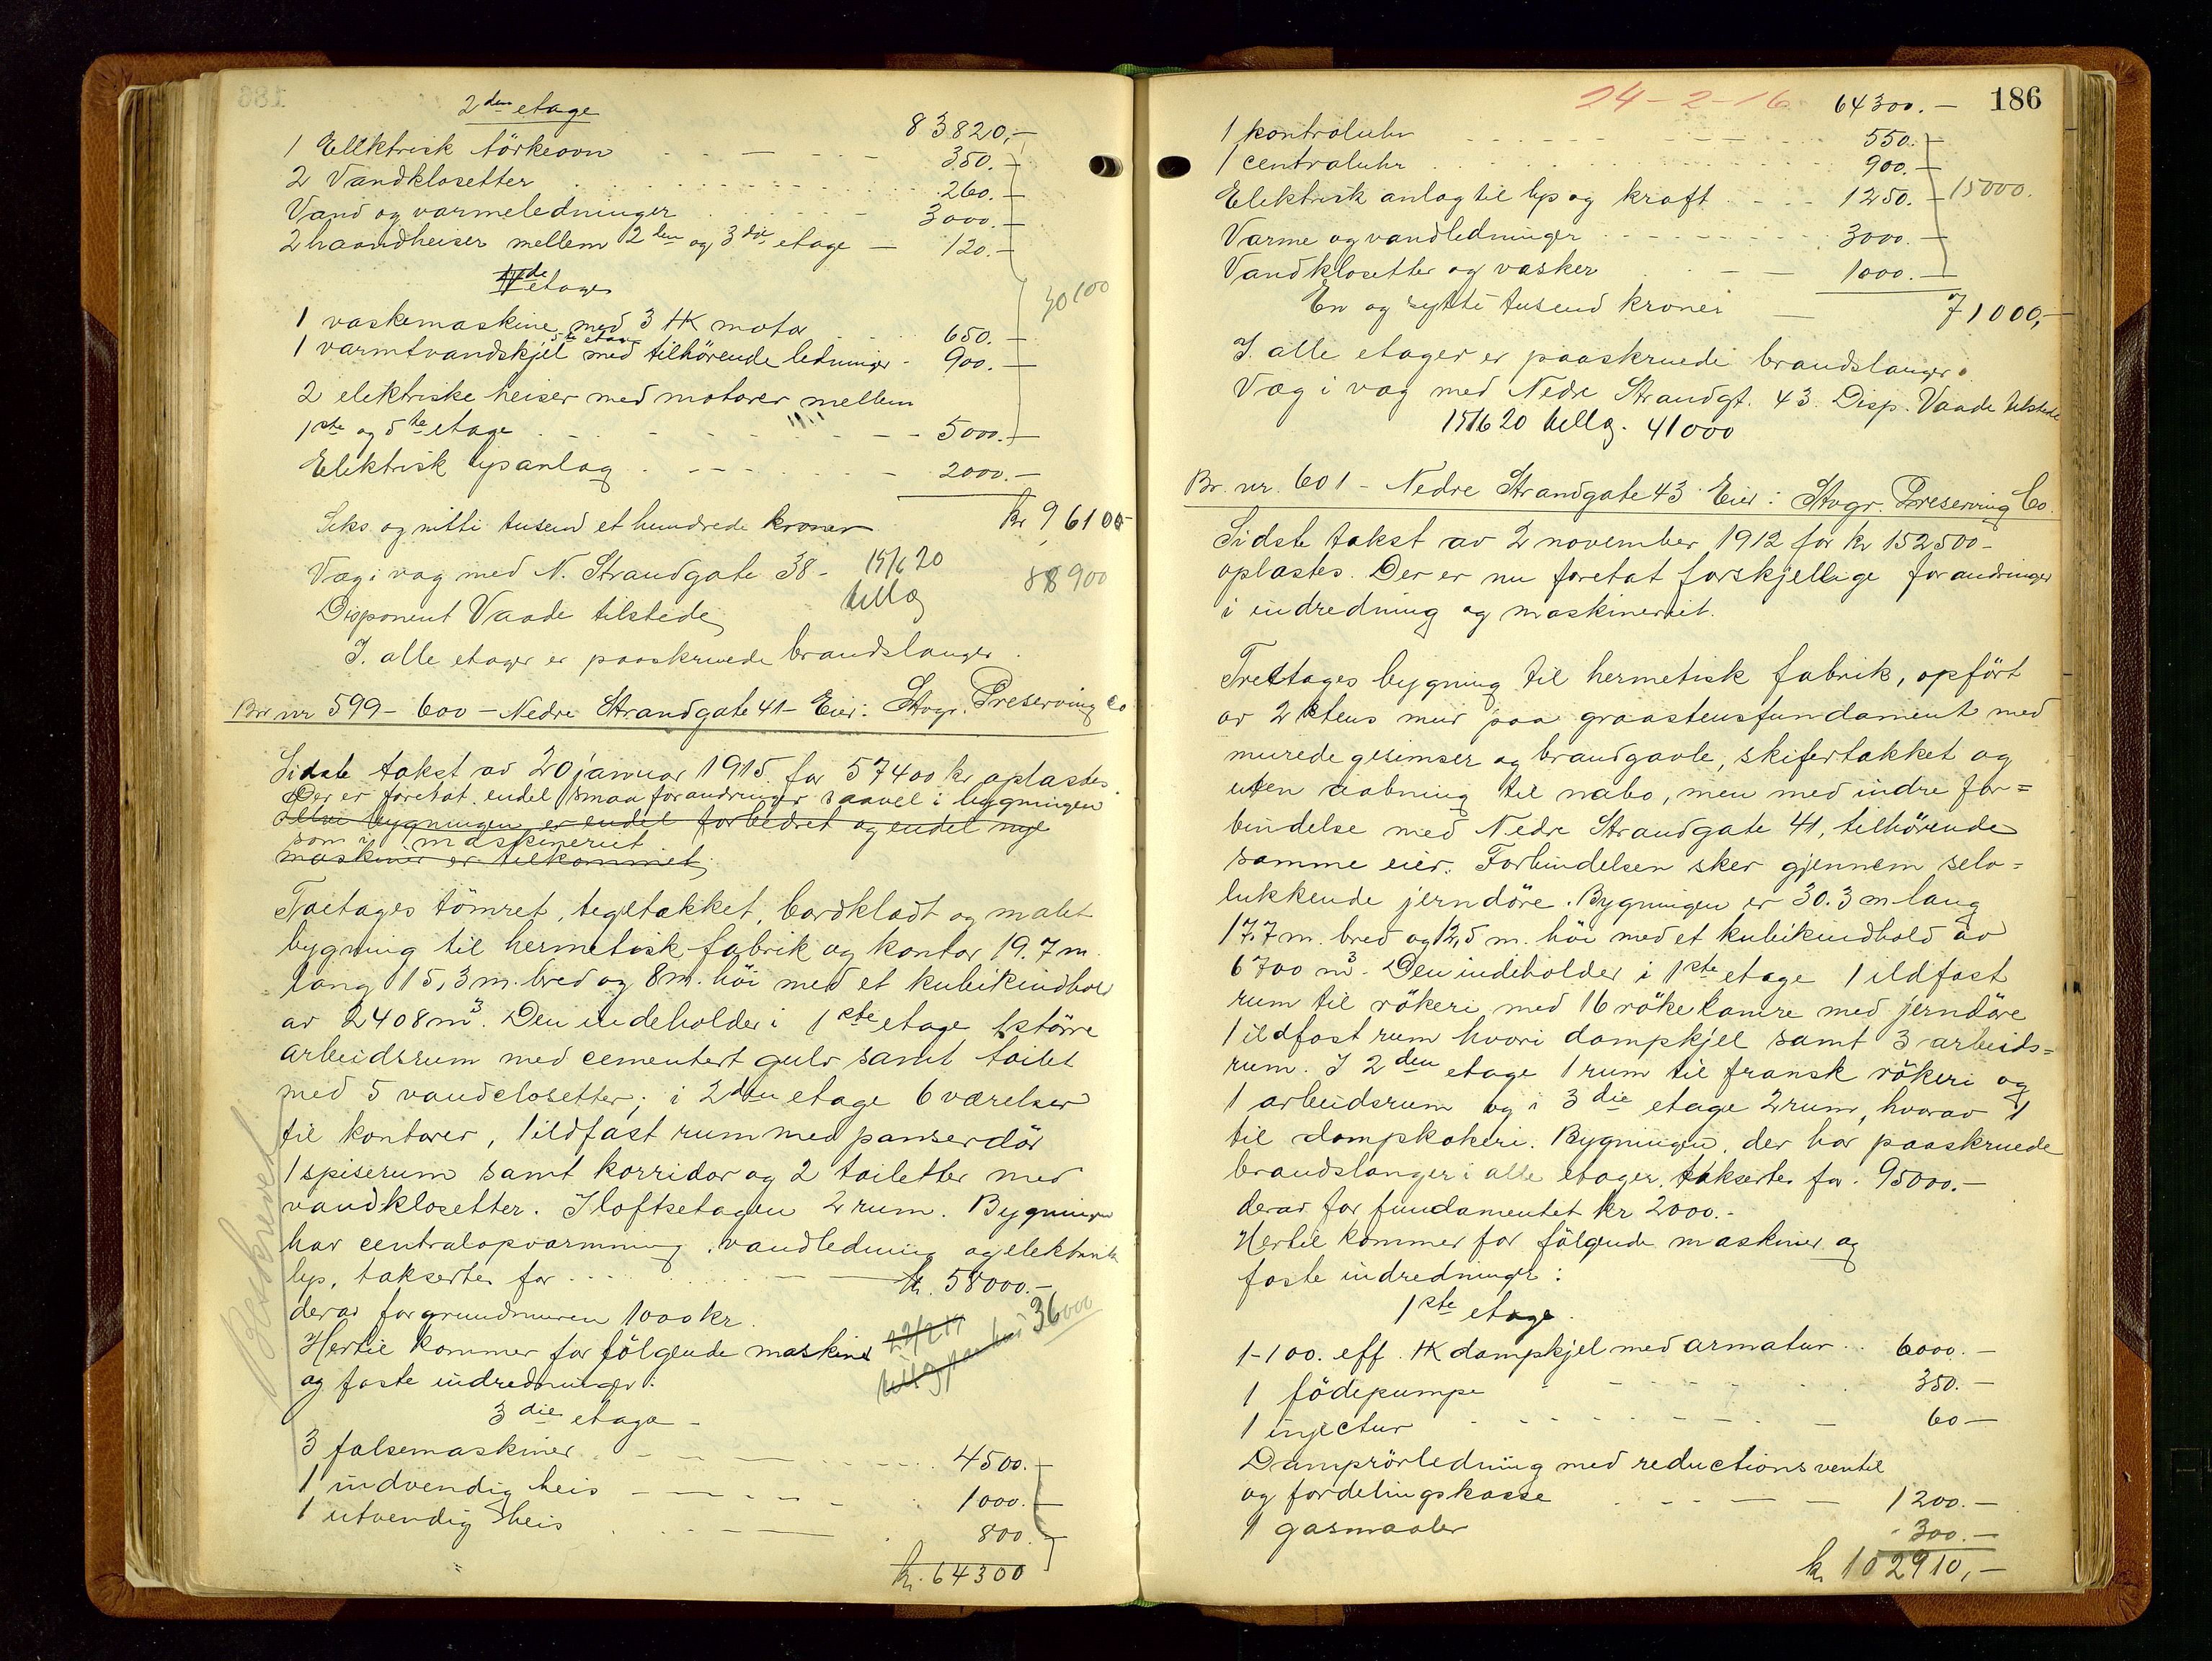 2den etage
83820,-
1 Ellktrisk törkeovn 350.-
2 Vandklosetter 260.-
Vand og varmeledninger 3000.-
2 haandheiser mellem 2den og 3die etage - 120.-
IVde etage
30100
1 vaskemaskine med 3 HK motor 650.-
5te etage
1 varmtvandskjel med tilhörende ledninger - 900.-
2 elektriske heiser med motorer mellem
1ste og 5te etage 5000.-
Elektrisk lysanlæg 2000.-
Seks og nitti tusend et hundrede kroner kr 96100-
Væg i væg med N. Strandgate 38- 15/6 20
Disponent Vaade tilstede tillæg 88900
I alle etager er paaskruede brandslanger.
Br nr 599-600 - Nedre Strandgate 41 - Eier: Stvgr. Preserving Co
Sidste takst av 20 januar 1915 for 57400 kr oplæstes.
Der er foretat endel smaa forandringer saavel i bygningen
bygningen er endel forbedret og endel nye
som i maskineriet
maskiner er tilkommet
Toetages tömret, tegltækket, bordklædt og malet
bygning til hermetisk fabrik og kontor 19.7 m
lang 15,3 m. bred og 8 m. höi med et kubikindhold
av 2408 m3. Den indeholder i 1ste etage 1 större
arbeidsrum med cementert gulv samt toilet
med 5 vandclosetter; i 2den etage 6 værelser
til kontorer, 1 ildfast rum med panserdör
1 spiserum samt korridor og 2 toiletter med
vandklosetter. I loftsetagen 2 rum. Bygningen
har centralopvarmning, vandledning og elektrisk
lys, takseres for kr. 58000.-
derav for grundmuren 1000 kr.
Hertil kommer for fölgende maskiner 22/2 17
og faste indredninger: 36000
Beskrevet
3die etage -
3 falsemaskiner 4500.-
1 indvendig heis 1000.-
1 utvendig heis 800.-
kr. 64300
24-2-16 64300.- 186
1 kontroluhr 550.-
1 centraluhr 900.-
Elektrisk anlæg til lys og kraft 1250.- 15000.
Varme og vandledninger 3000.-
Vandklosetter og vasker 1000.-
En og sytti tusend kroner 71000,-
I alle etager er paaskruede brandslanger.
Væg i væg med Nedre Strandgt. 43. Disp. Vaade tilstede
15/6 20 tillæg. 41000
Br. nr. 601 - Nedre Strandgate 43 Eier: Stvgr. Preserving Co.
Sidste takst av 2 november 1912 for kr 152500-
oplæstes. Der er nu foretat forskjellige forandringer
i indredning og maskineriet.
Treetages bygning til hermetisk fabrik, opfört
av 2 stens mur paa graastensfundament med
murede gesimser og brandgavle, skifertækket og
uten aabning til nabo, men med indre for=
bindelse med Nedre Strandgate 41, tilhörende
samme eier. Forbindelsen sker gjennem selv=
lukkende jerndöre. Bygningen er 30.3 m lang
17,7 m. bred og 12,5 m. höi med et kubikindhold av
6700 m3. Den indeholder i 1ste etage 1 ildfast
rum til rökeri med 16 rökekamre med jerndöre
1 ildfast rum hvori dampkjel samt 3 arbeids=
rum. I 2den etage 1 rum til fransk rökeri og
1 arbeidsrum og i 3die etage 2 rum, hvorav 1
til dampkokeri. Bygningen, der har paaskruede
brandslanger i alle etager, takseres for: 95000.-
derav for fundamentet kr 2000.-
Hertil kommer for fölgende maskiner og
faste indredninger:
1ste etage.
1-100. eff. HK dampkjel med armatur 6000.-
1 födepumpe 350.-
1 injectur 60-
Damprörledning med reductionsventil
og fordelingskasse 1200.-
1 gasmaaler 300.-
kr 102910,-